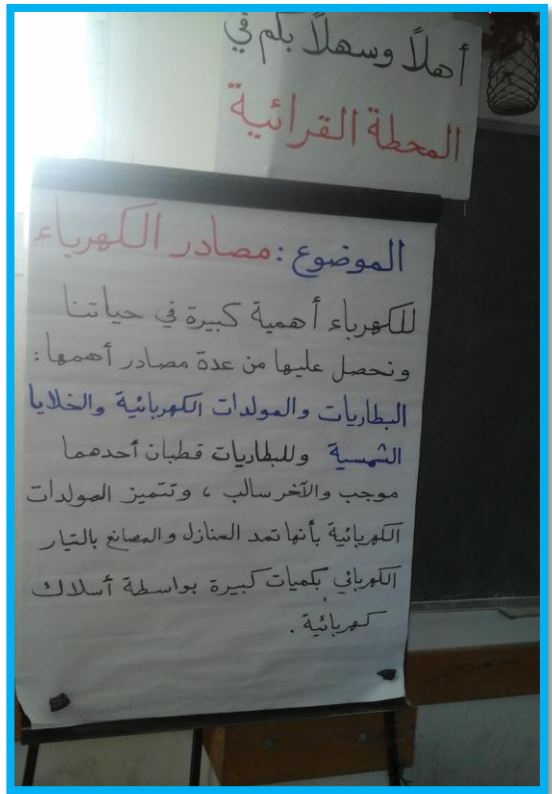 أهلاً وسهلاً بكم في
المحطة القرائية
الموضوع : مصادر الكهرباء
للكهرباء أهمية كبيرة في حياتنا
ونحصل عليها من عدة مصادر أهمها :
البطاريات والمولدات الكهربائية والخلايا
الشمسية وللبطاريات قطبان أحدهما
موجب والآخر سالب ، وتتميز المولدات
الكهربائية بأنها تمد المنازل والمصانع بالتيار
الكهربائي بكميات كبيرة بواسطة أسلاك
كهربائية .